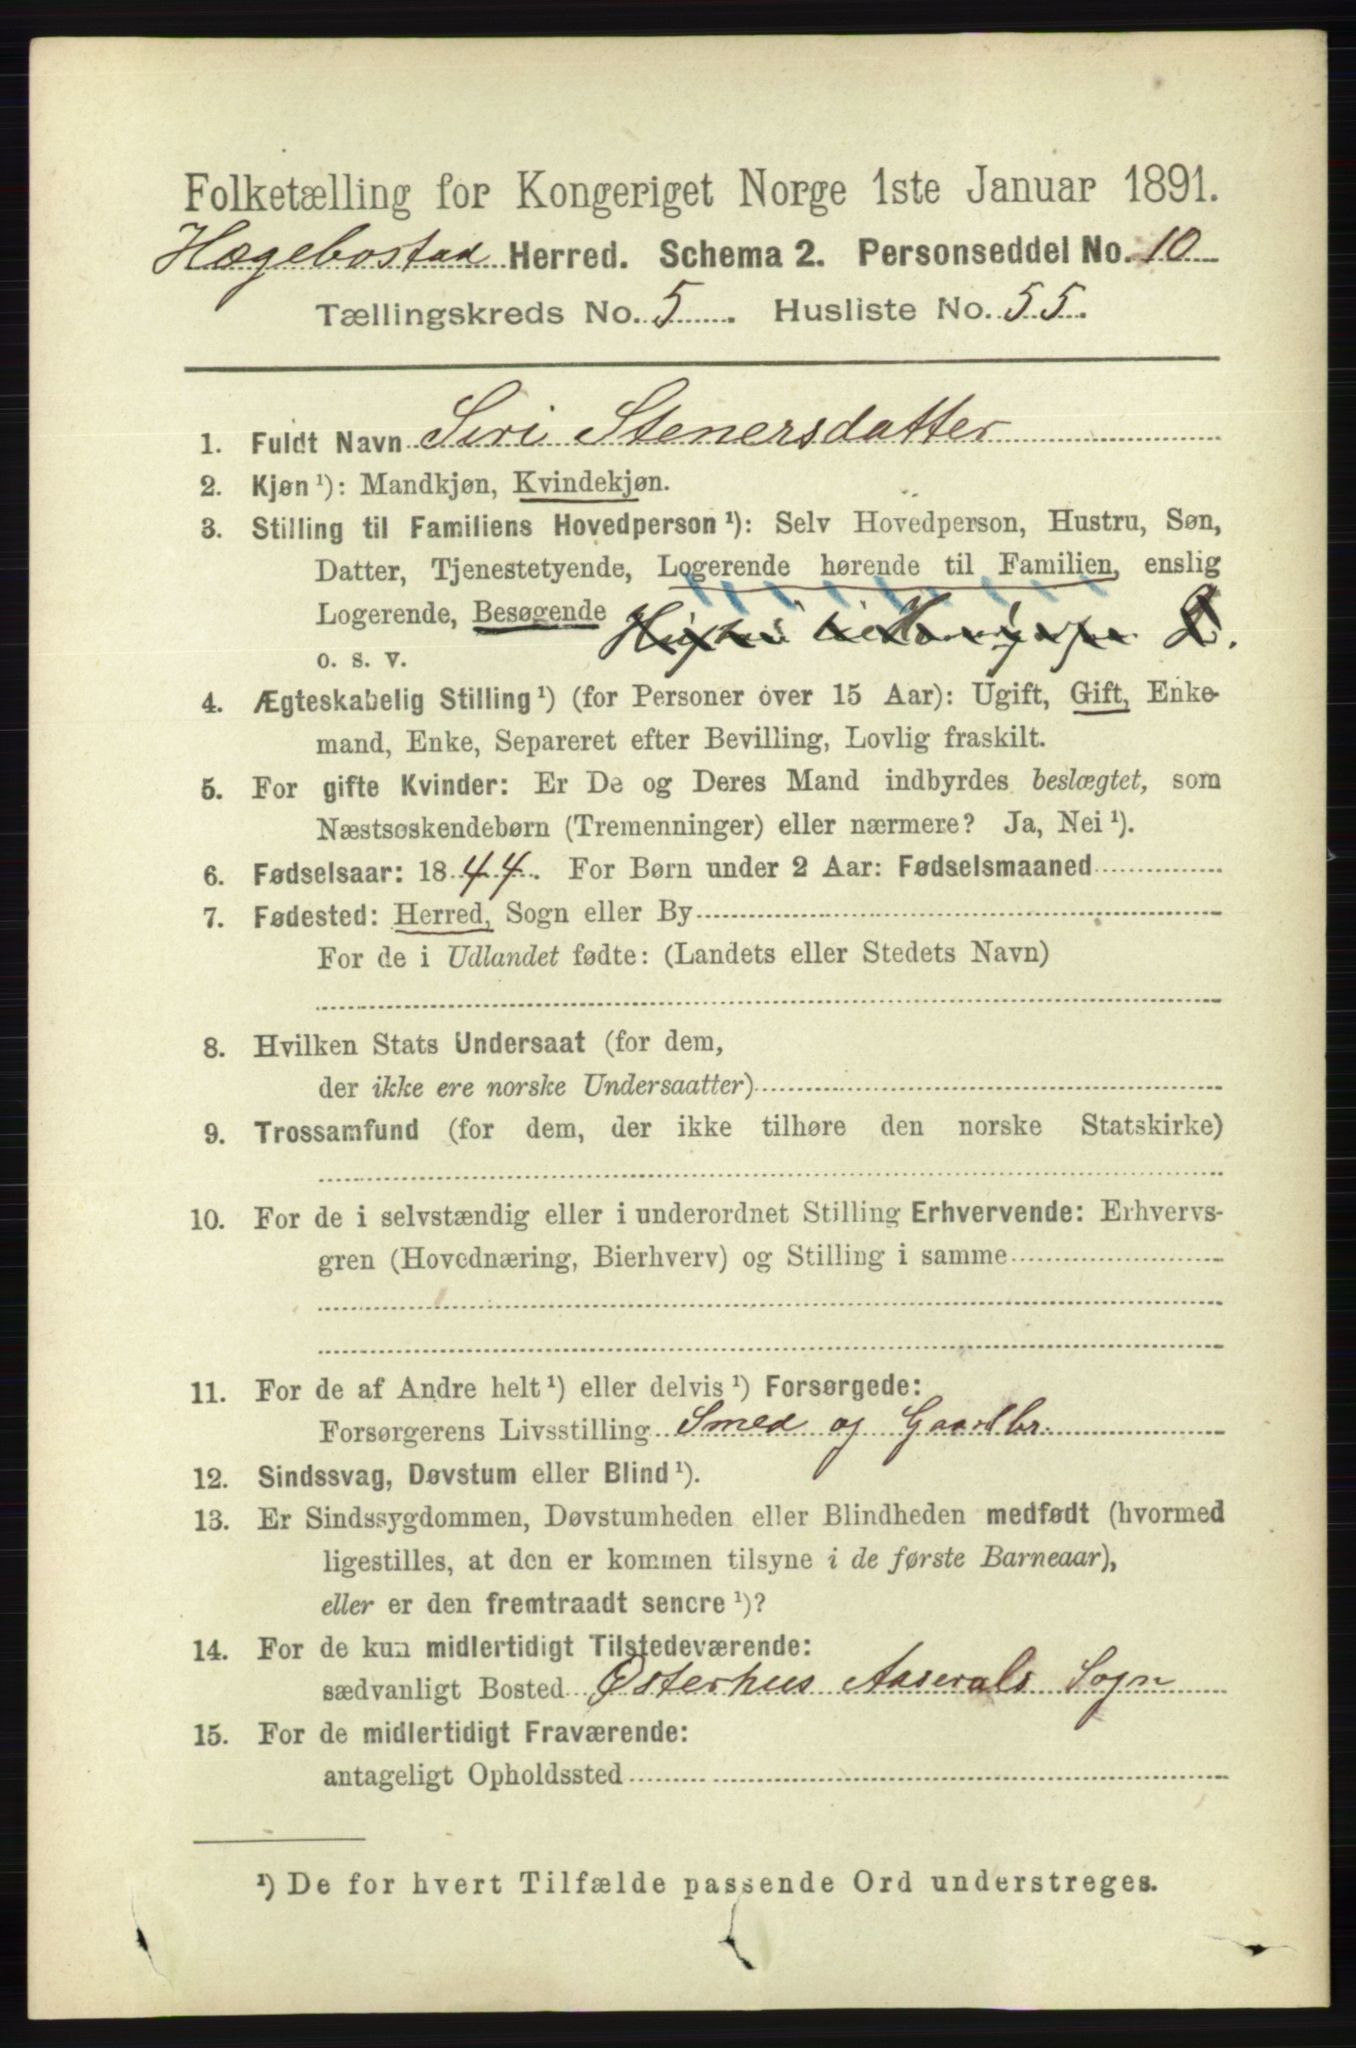 Folketælling for Kongeriget Norge 1ste Januar 1891.
Hægebostad Herred. Schema 2. Personseddel No. 10
Tællingskreds No. 5. Husliste No. 55.
1. Fuldt Navn Siri Stenersdatter
2. Kjøn ¹): Mandkjøn, Kvindekjøn.
3. Stilling til Familiens Hovedperson ¹): Selv Hovedperson, Hustru, Søn,
Datter, Tjenestetyende, Logerende hørende til Familien, enslig
Logerende, Besøgende
o. s. v.
4. Ægteskabelig Stilling ¹) (for Personer over 15 Aar): Ugift, Gift, Enke-
mand, Enke, Separeret efter Bevilling, Lovlig fraskilt.
5. For gifte Kvinder: Er De og Deres Mand indbyrdes beslægtet, som
Næstsøskendebørn (Tremenninger) eller nærmere? Ja, Nei ¹).
6. Fødselsaar: 1844. For Børn under 2 Aar: Fødselsmaaned
7. Fødested: Herred, Sogn eller By
For de i Udlandet fødte: (Landets eller Stedets Navn)
8. Hvilken Stats Undersaat (for dem,
der ikke ere norske Undersaatter)
9. Trossamfund (for dem, der ikke tilhøre den norske Statskirke)
10. For de i selvstændig eller i underordnet Stilling Erhvervende: Erhvervs-
gren (Hovednæring, Bierhverv) og Stilling i samme
11. For de af Andre helt ¹) eller delvis ¹) Forsørgede:
Forsørgerens Livsstilling Smed og Gaardbr.
12. Sindssvag, Døvstum eller Blind ¹).
13. Er Sindssygdommen, Døvstumheden eller Blindheden medfødt (hvormed
ligestilles, at den er kommen tilsyne i de første Barneaar),
eller er den fremtraadt senere ¹)?
14. For de kun midlertidigt Tilstedeværende:
sædvanligt Bosted Østerhus Aaserals Sogn
15. For de midlertidigt Fraværende:
antageligt Opholdssted
¹) De for hvert Tilfælde passende Ord understreges.